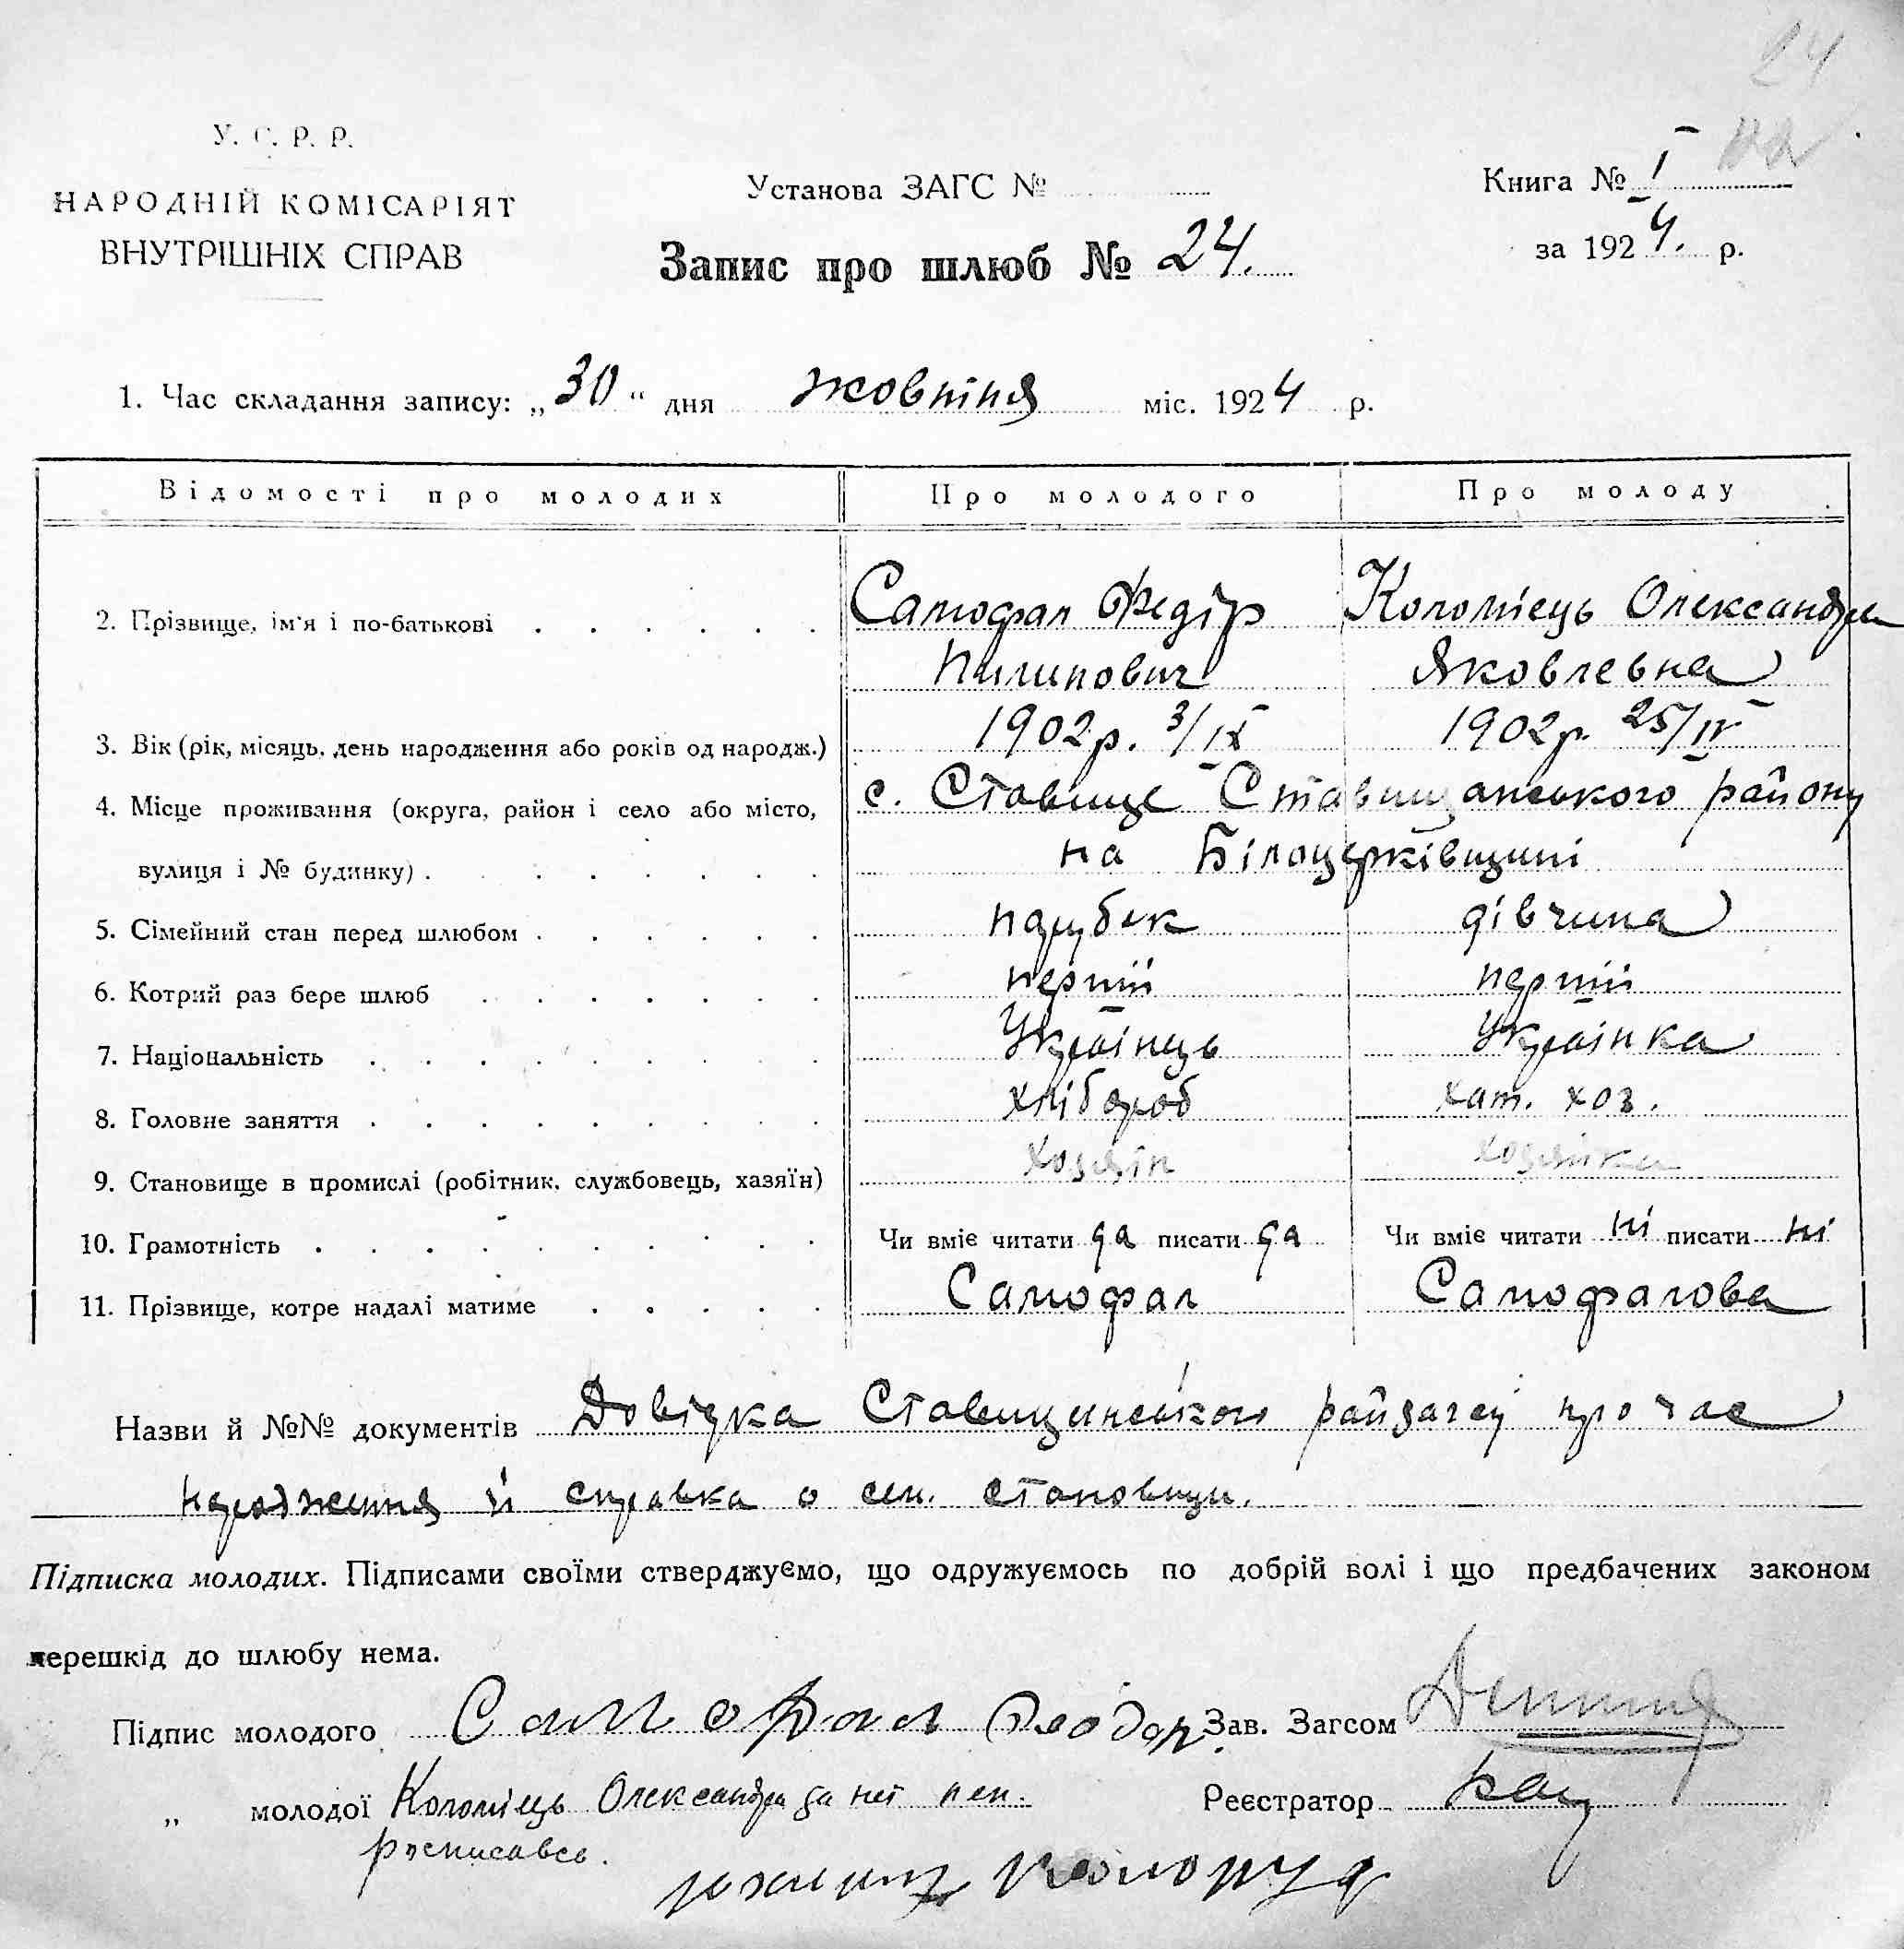 24
У. С. Р. Р.
НАРОДНІЙ КОМІСАРІЯТ
ВНУТРІШНІХ СПРАВ
Установа ЗАГС №
Запис про шлюб № 24.
Книга № I
за 1924. р.
1. Час складання запису: „30“ дня жовтня міс. 1924 р.
Відомості про молодих Про молодого Про молоду
2. Прізвище, ім'я і по-батькові Самофал Федір Коломієць Олександра
Пилипович Яковлевна
3. Вік (рік, місяць, день народження або років од народж.) 1902р. 3/IX 1902р. 25/IV
4. Місце проживання (округа, район і село або місто, с. Ставище Ставищанського району
вулиця і № будинку) на Білоцерківщині
5. Сімейний стан перед шлюбом парубок дівчина
6. Котрий раз бере шлюб перший перший
7. Національність Українець Українка
8. Головне заняття хлібороб хат. хоз.
9. Становище в промислі (робітник, службовець, хазяїн) хозяін хозяйка
10. Грамотність Чи вміє читати да писати да Чи вміє читати ні писати ні
11. Прізвище, котре надалі матиме Самофал Самофалова
Назви й №№ документів Довідка Ставищанського райзагсу про час
народження й справка о сем. становищи.
Підписка молодих. Підписами своїми стверджуємо, що одружуємось по добрій волі і що предбачених законом
перешкід до шлюбу нема.
Підпис молодого Самофал Феодор. Зав. Загсом
„ молодої Коломієць Олександра за неї неп. Реєстратор
росписавсь.